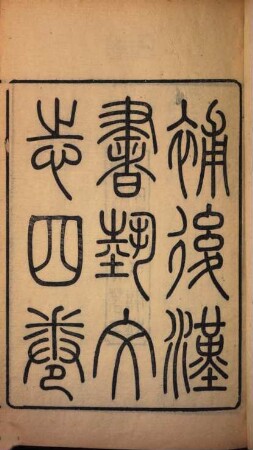 補後漢
書藝文
志四卷